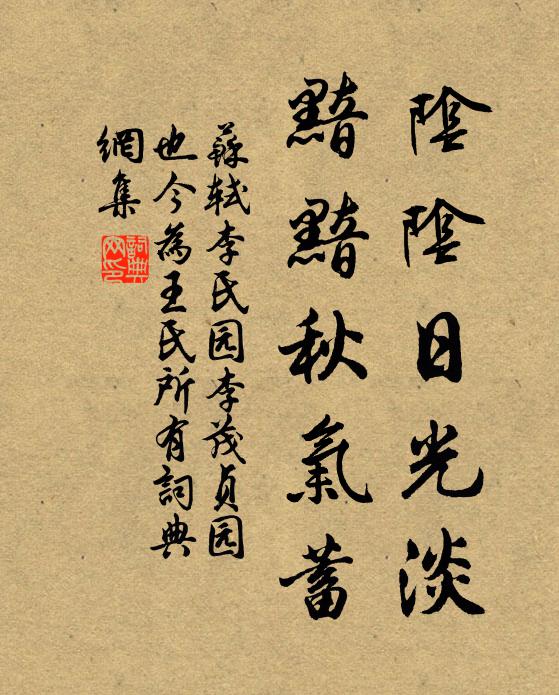 陰陰日光淡
黯黯秋氣蓄
蘇軾李氏园李茂貞园
也今為王氏所有詞典
網集
詞典网印